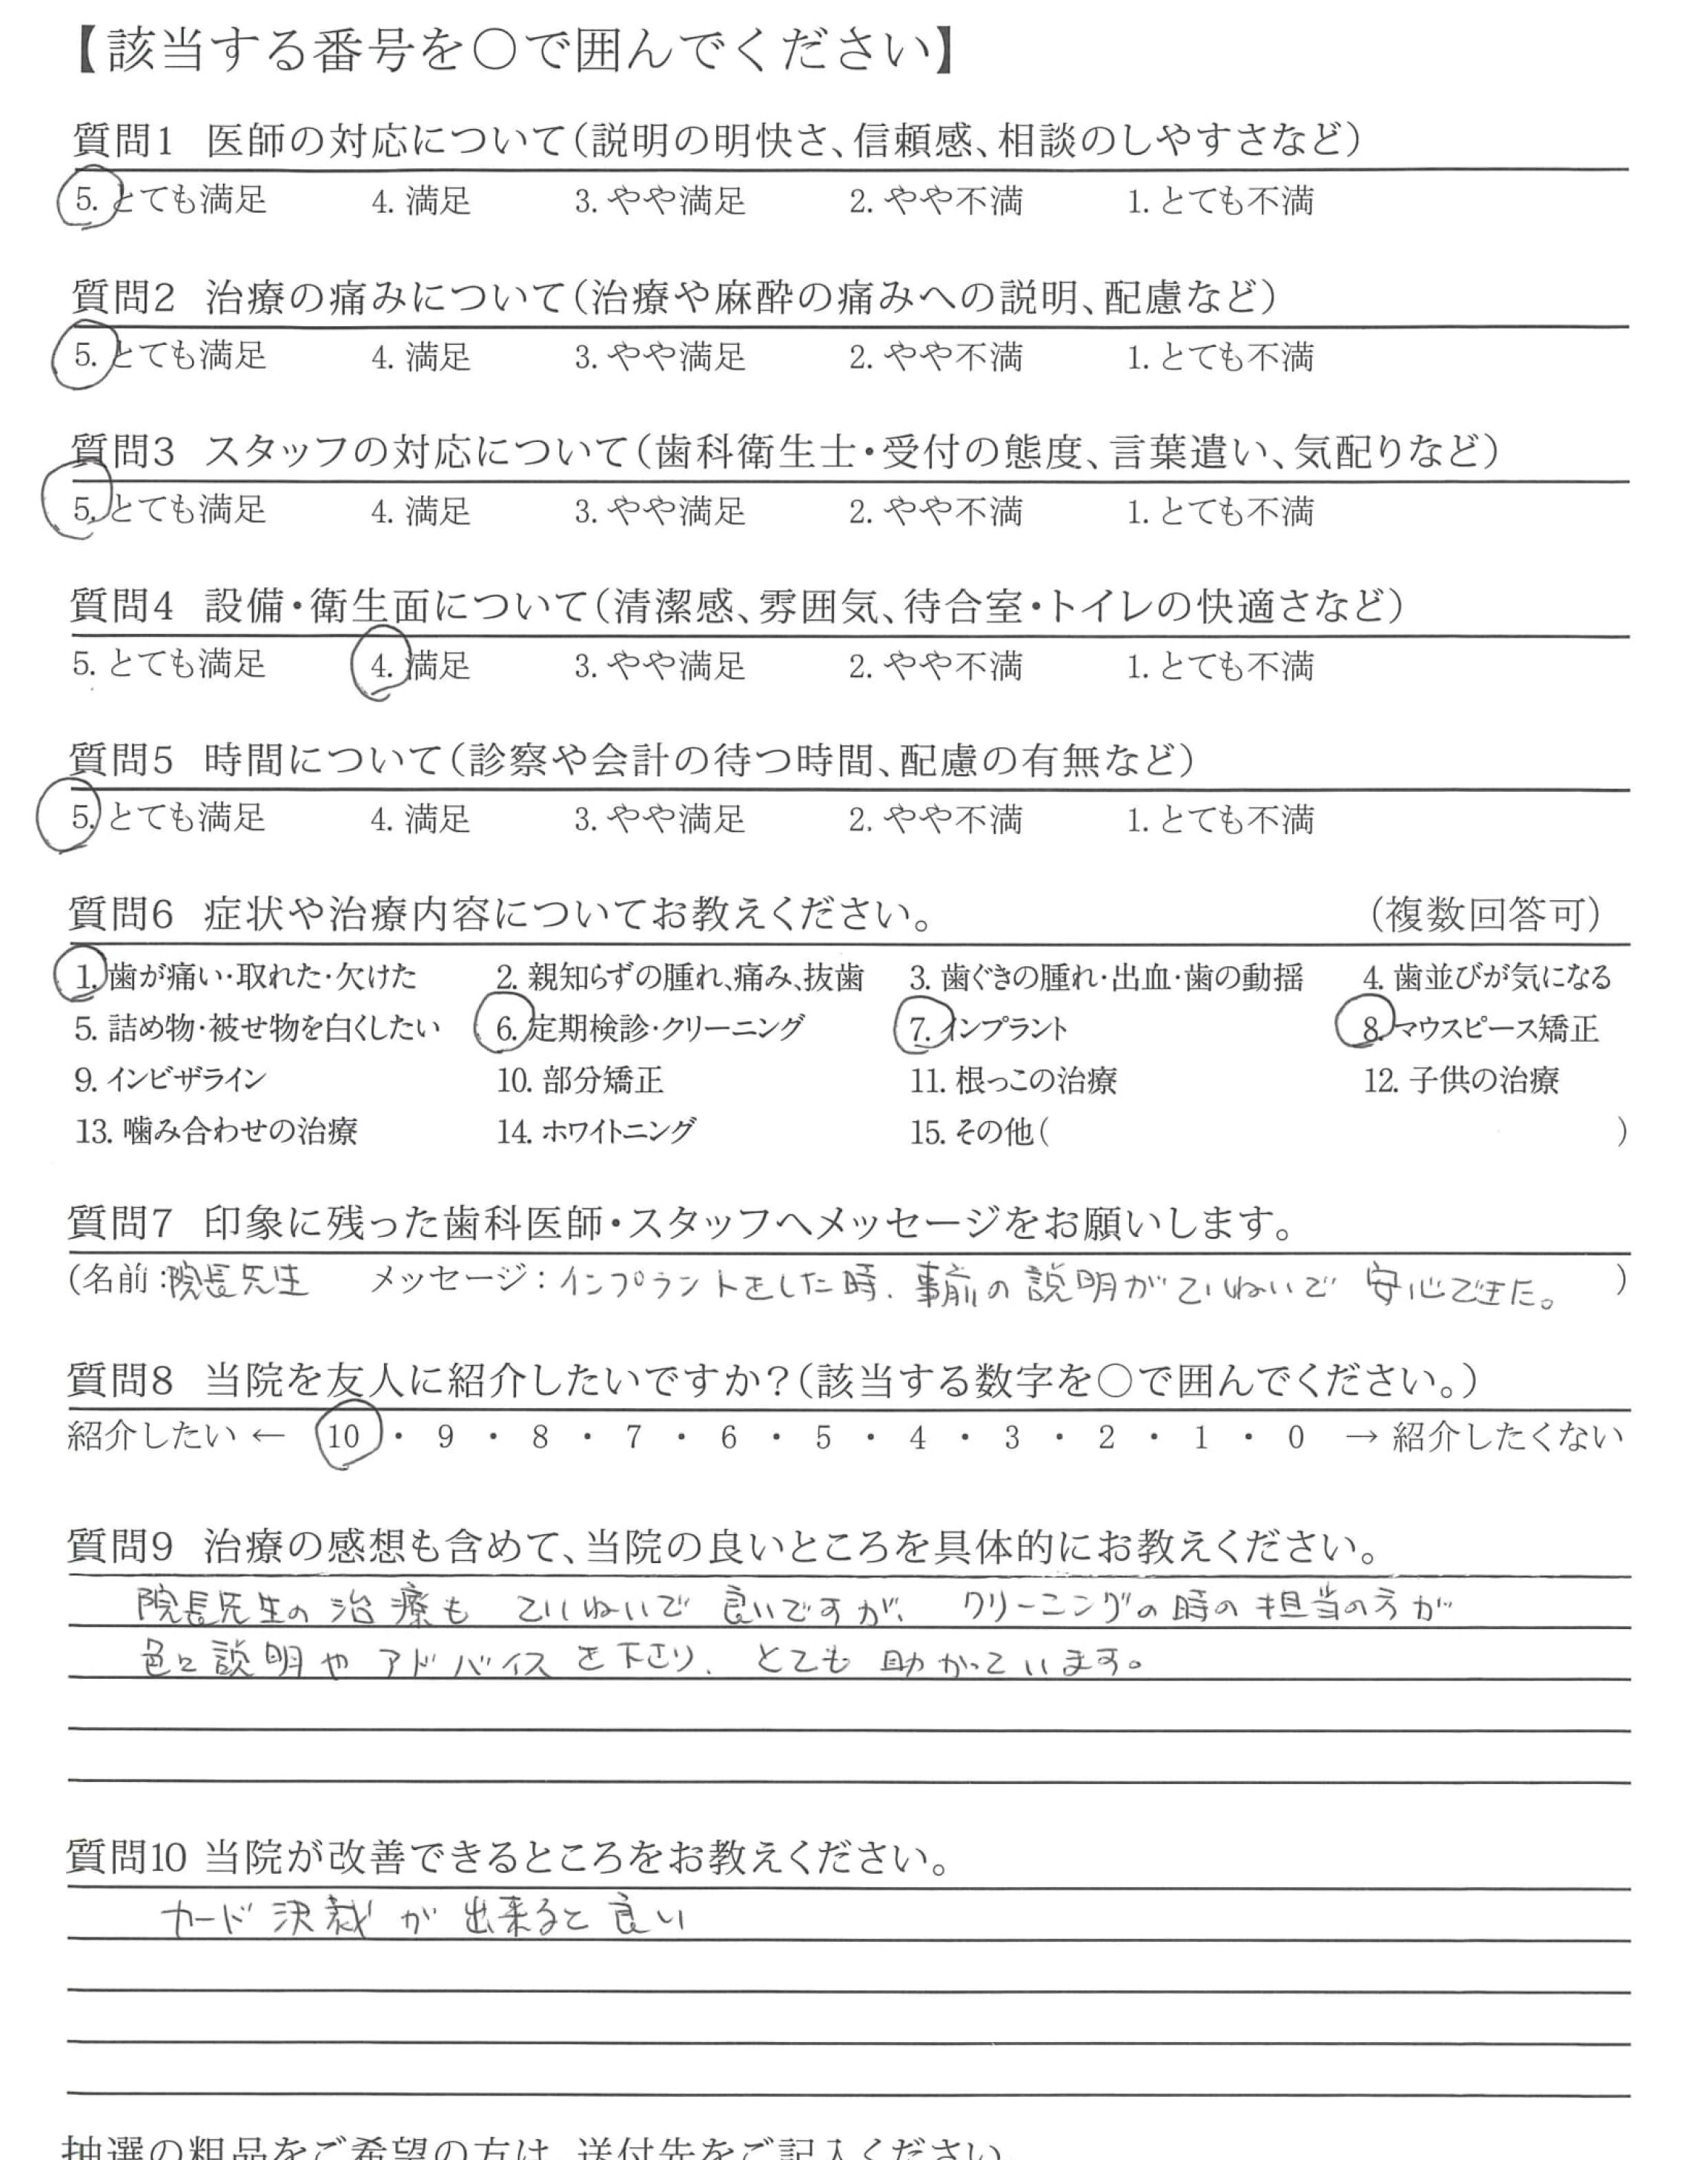 【該当する番号を〇で囲んでください】
質問1 医師の対応について(説明の明快さ、信頼感、相談のしやすさなど)
5. とても満足 4. 満足 3. やや満足 2. やや不満 1. とても不満
質問2 治療の痛みについて(治療や麻酔の痛みへの説明、配慮など)
5. とても満足 4. 満足 3. やや満足 2. やや不満 1. とても不満
質問3 スタッフの対応について(歯科衛生士・受付の態度、言葉遣い、気配りなど)
5. とても満足 4. 満足 3. やや満足 2. やや不満 1. とても不満
質問4 設備・衛生面について(清潔感、雰囲気、待合室・トイレの快適さなど)
5. とても満足 4. 満足 3. やや満足 2. やや不満 1. とても不満
質問5 時間について(診察や会計の待つ時間、配慮の有無など)
5. とても満足 4. 満足 3. やや満足 2. やや不満 1. とても不満
質問6 症状や治療内容についてお教えください。 (複数回答可)
1. 歯が痛い・取れた・欠けた 2. 親知らずの腫れ、痛み、抜歯 3. 歯ぐきの腫れ・出血・歯の動揺 4. 歯並びが気になる
5. 詰め物・被せ物を白くしたい 6. 定期検診・クリーニング 7. インプラント 8. マウスピース矯正
9. インビザライン 10. 部分矯正 11. 根っこの治療 12. 子供の治療
13. 噛み合わせの治療 14. ホワイトニング 15. その他( )
質問7 印象に残った歯科医師・スタッフへメッセージをお願いします。
(名前:院長先生 メッセージ:インプラントをした時、事前の説明がていねいで安心できた。)
質問8 当院を友人に紹介したいですか?(該当する数字を〇で囲んでください。)
紹介したい ← 10 ・ 9 ・ 8 ・ 7 ・ 6 ・ 5 ・ 4 ・ 3 ・ 2 ・ 1 ・ 0 → 紹介したくない
質問9 治療の感想も含めて、当院の良いところを具体的にお教えください。
院長先生の治療もていねいで良いですが、クリーニングの時の担当の方が
色々説明やアドバイスを下さり、とても助かっています。
質問10 当院が改善できるところをお教えください。
カード決裁が出来ると良い
抽選の粗品をご希望の方は、送付先をご記入ください